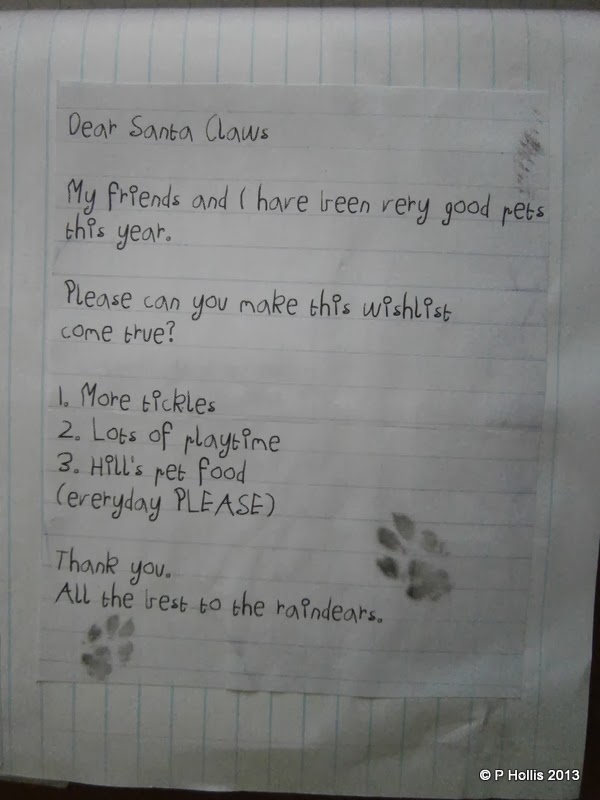 Dear Santa Claws
My friends and I have been very good pets
this year.
Please can you make this wishlist
come true?
1. More tickles
2. Lots of playtime
3. Hill's pet food
(everyday PLEASE)
Thank you.
All the best to the raindears.
© P Hollis 2013